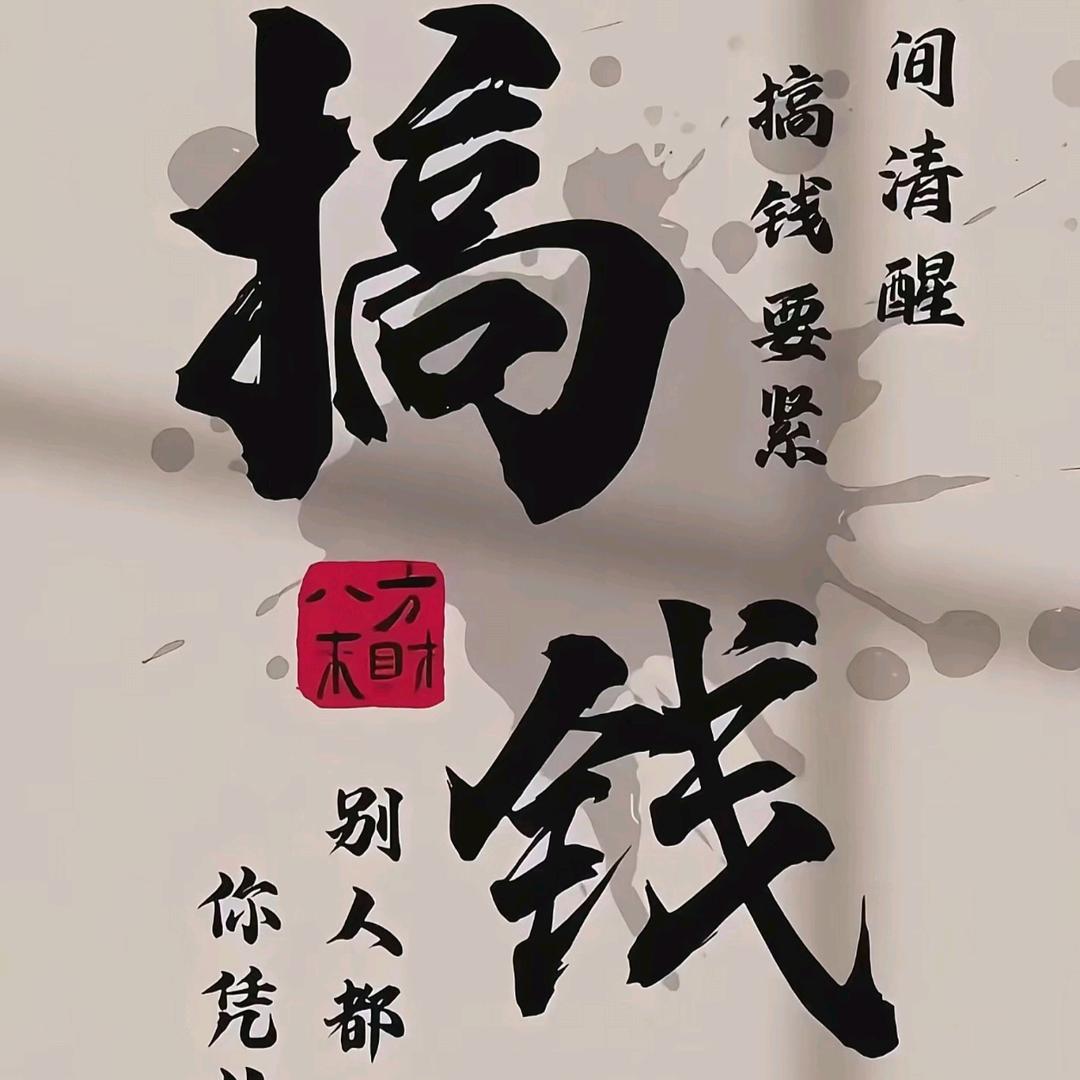 间清醒
搞钱要紧
搞钱
八方来财
别人都
你凭